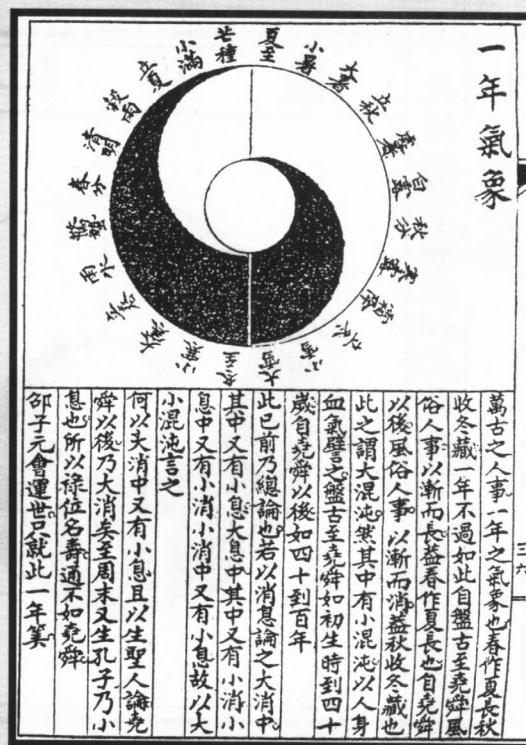 一年氣象
夏至
小暑
大暑
立秋
處暑
白露
秋分
寒露
霜降
立冬
小雪
大雪
冬至
小寒
大寒
立春
雨水
驚蟄
春分
清明
穀雨
立夏
小滿
芒種
三六
萬古之人事一年之氣象也春作夏長秋
收冬藏一年不過如此自盤古至堯舜風
俗人事以漸而長盖春作夏長也自堯舜
以後風俗人事以漸而消盖秋收冬藏也
此之謂大混沌然其中有小混沌以人身
血氣譬之盤古至堯舜如初生時到四十
歲自堯舜以後如四十到百年
此已前乃總論也若以消息論之大消中
其中又有小息大息中其中又有小消小
息中又有小消小消中又有小息故以大
小混沌言之
何以大消中又有小息且以生聖人論堯
舜以後乃大消矣至周末又生孔子乃小
息也所以祿位名壽通不如堯舜
邵子元會運世只就此一年筭